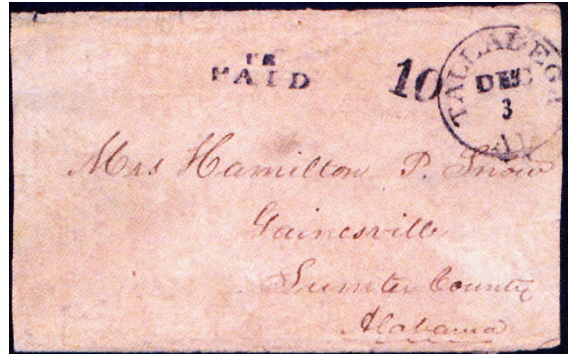 PAID
10
TALLADEGA
DEC
3
Mrs Hamilton P. Snow
Gainesville
Sumter County
Alabama